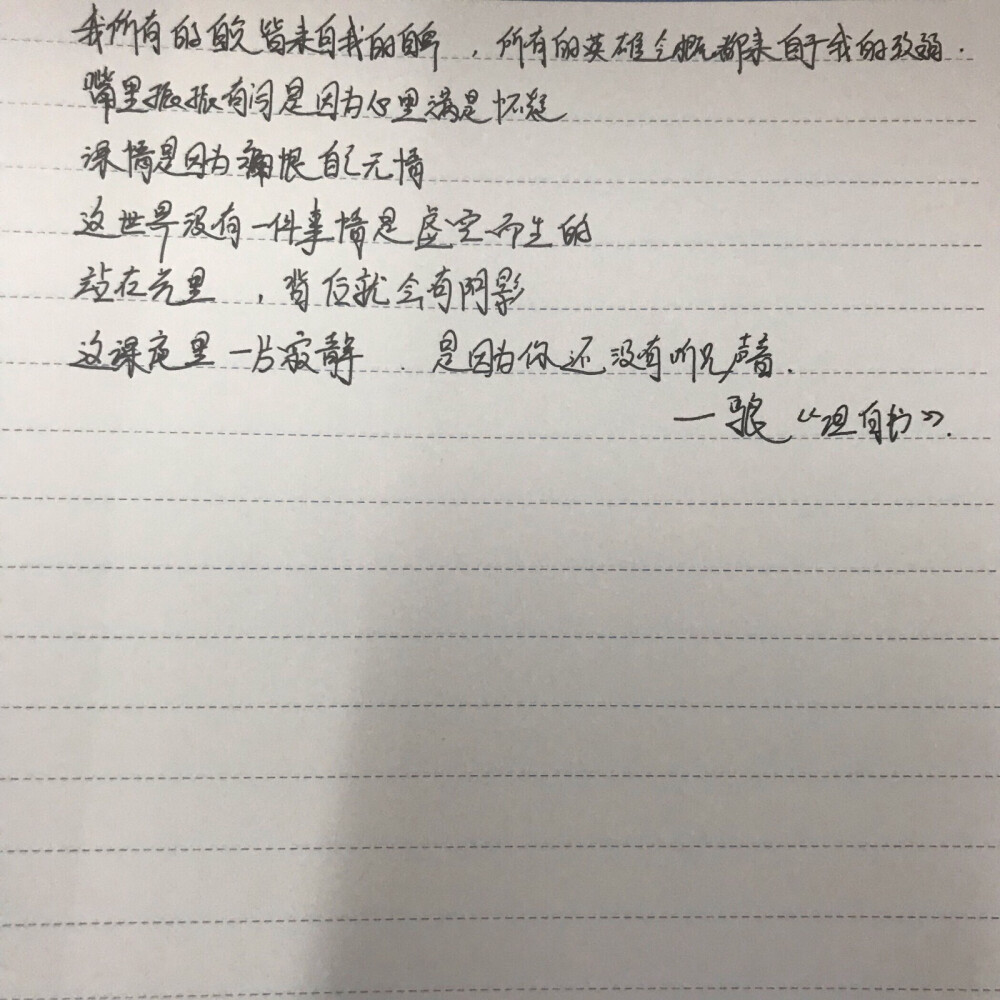 我所有的自负皆来自我的自卑，所有的英雄气概都来自于我的软弱.
嘴里振振有词是因为心里满是怀疑
深情是因为痛恨自己无情
这世界没有一件事情是虚空而生的
站在光里，背后就会有阴影
这深夜里一片寂静.是因为你还没有听见声音.
一 《坦白书》.